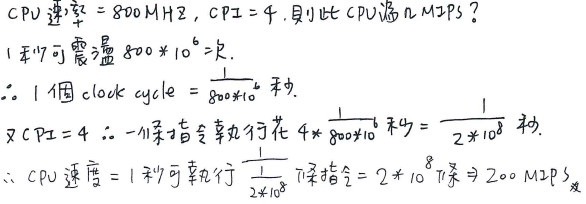 CPU速率=800MHZ, CPI=4. 則此CPU為几MIPS?
1秒可震盪 800*10^6次.
∴ 1個clock cycle = 1/(800*10^6) 秒.
又CPI=4 ∴一條指令執行花 4*1/(800*10^6) 秒 = 1/(2*10^8) 秒.
∴ CPU速度=1秒可執行 1/(1/(2*10^8)) 條指令=2*10^8條⇒200 MIPS